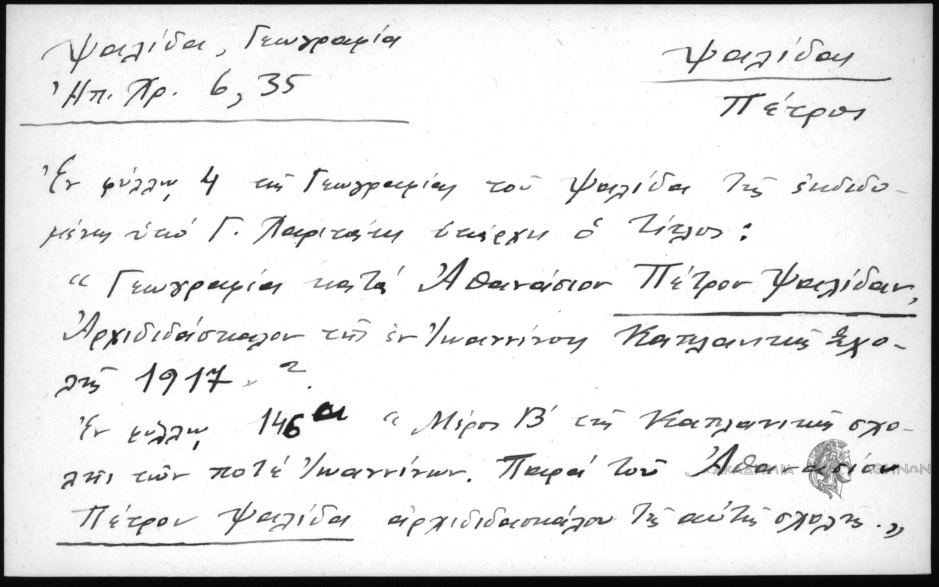 Ψαλίδα, Γεωγραφία
Ψαλίδας
Ἠπ. Χρ. 6, 35
Πέτρος
Ἐν φύλλῳ 4 τῆς Γεωγραφίας τοῦ Ψαλίδα τῆς ἐκδιδο-
μένης ὑπό Γ. Χαριτάκη ὑπάρχει ὁ τίτλος:
"Γεωγραφία κατά Ἀθανάσιον Πέτρον Ψαλίδαν,
Ἀρχιδιδάσκαλον τῆς ἐν Ἰωαννίνοις Καπλανικῆς Σχο-
λῆς 1917."
Ἐν φύλλῳ 146α "Μέρος Β' τῆς Καπλανικῆς σχο-
λῆς τῶν ποτέ Ἰωαννίνων. Παρά τοῦ Ἀθανασίου
Πέτρου Ψαλίδα ἀρχιδιδασκάλου τῆς αὐτῆς σχολῆς."